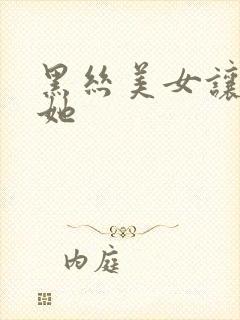 黑絲美女讓
她
內庭